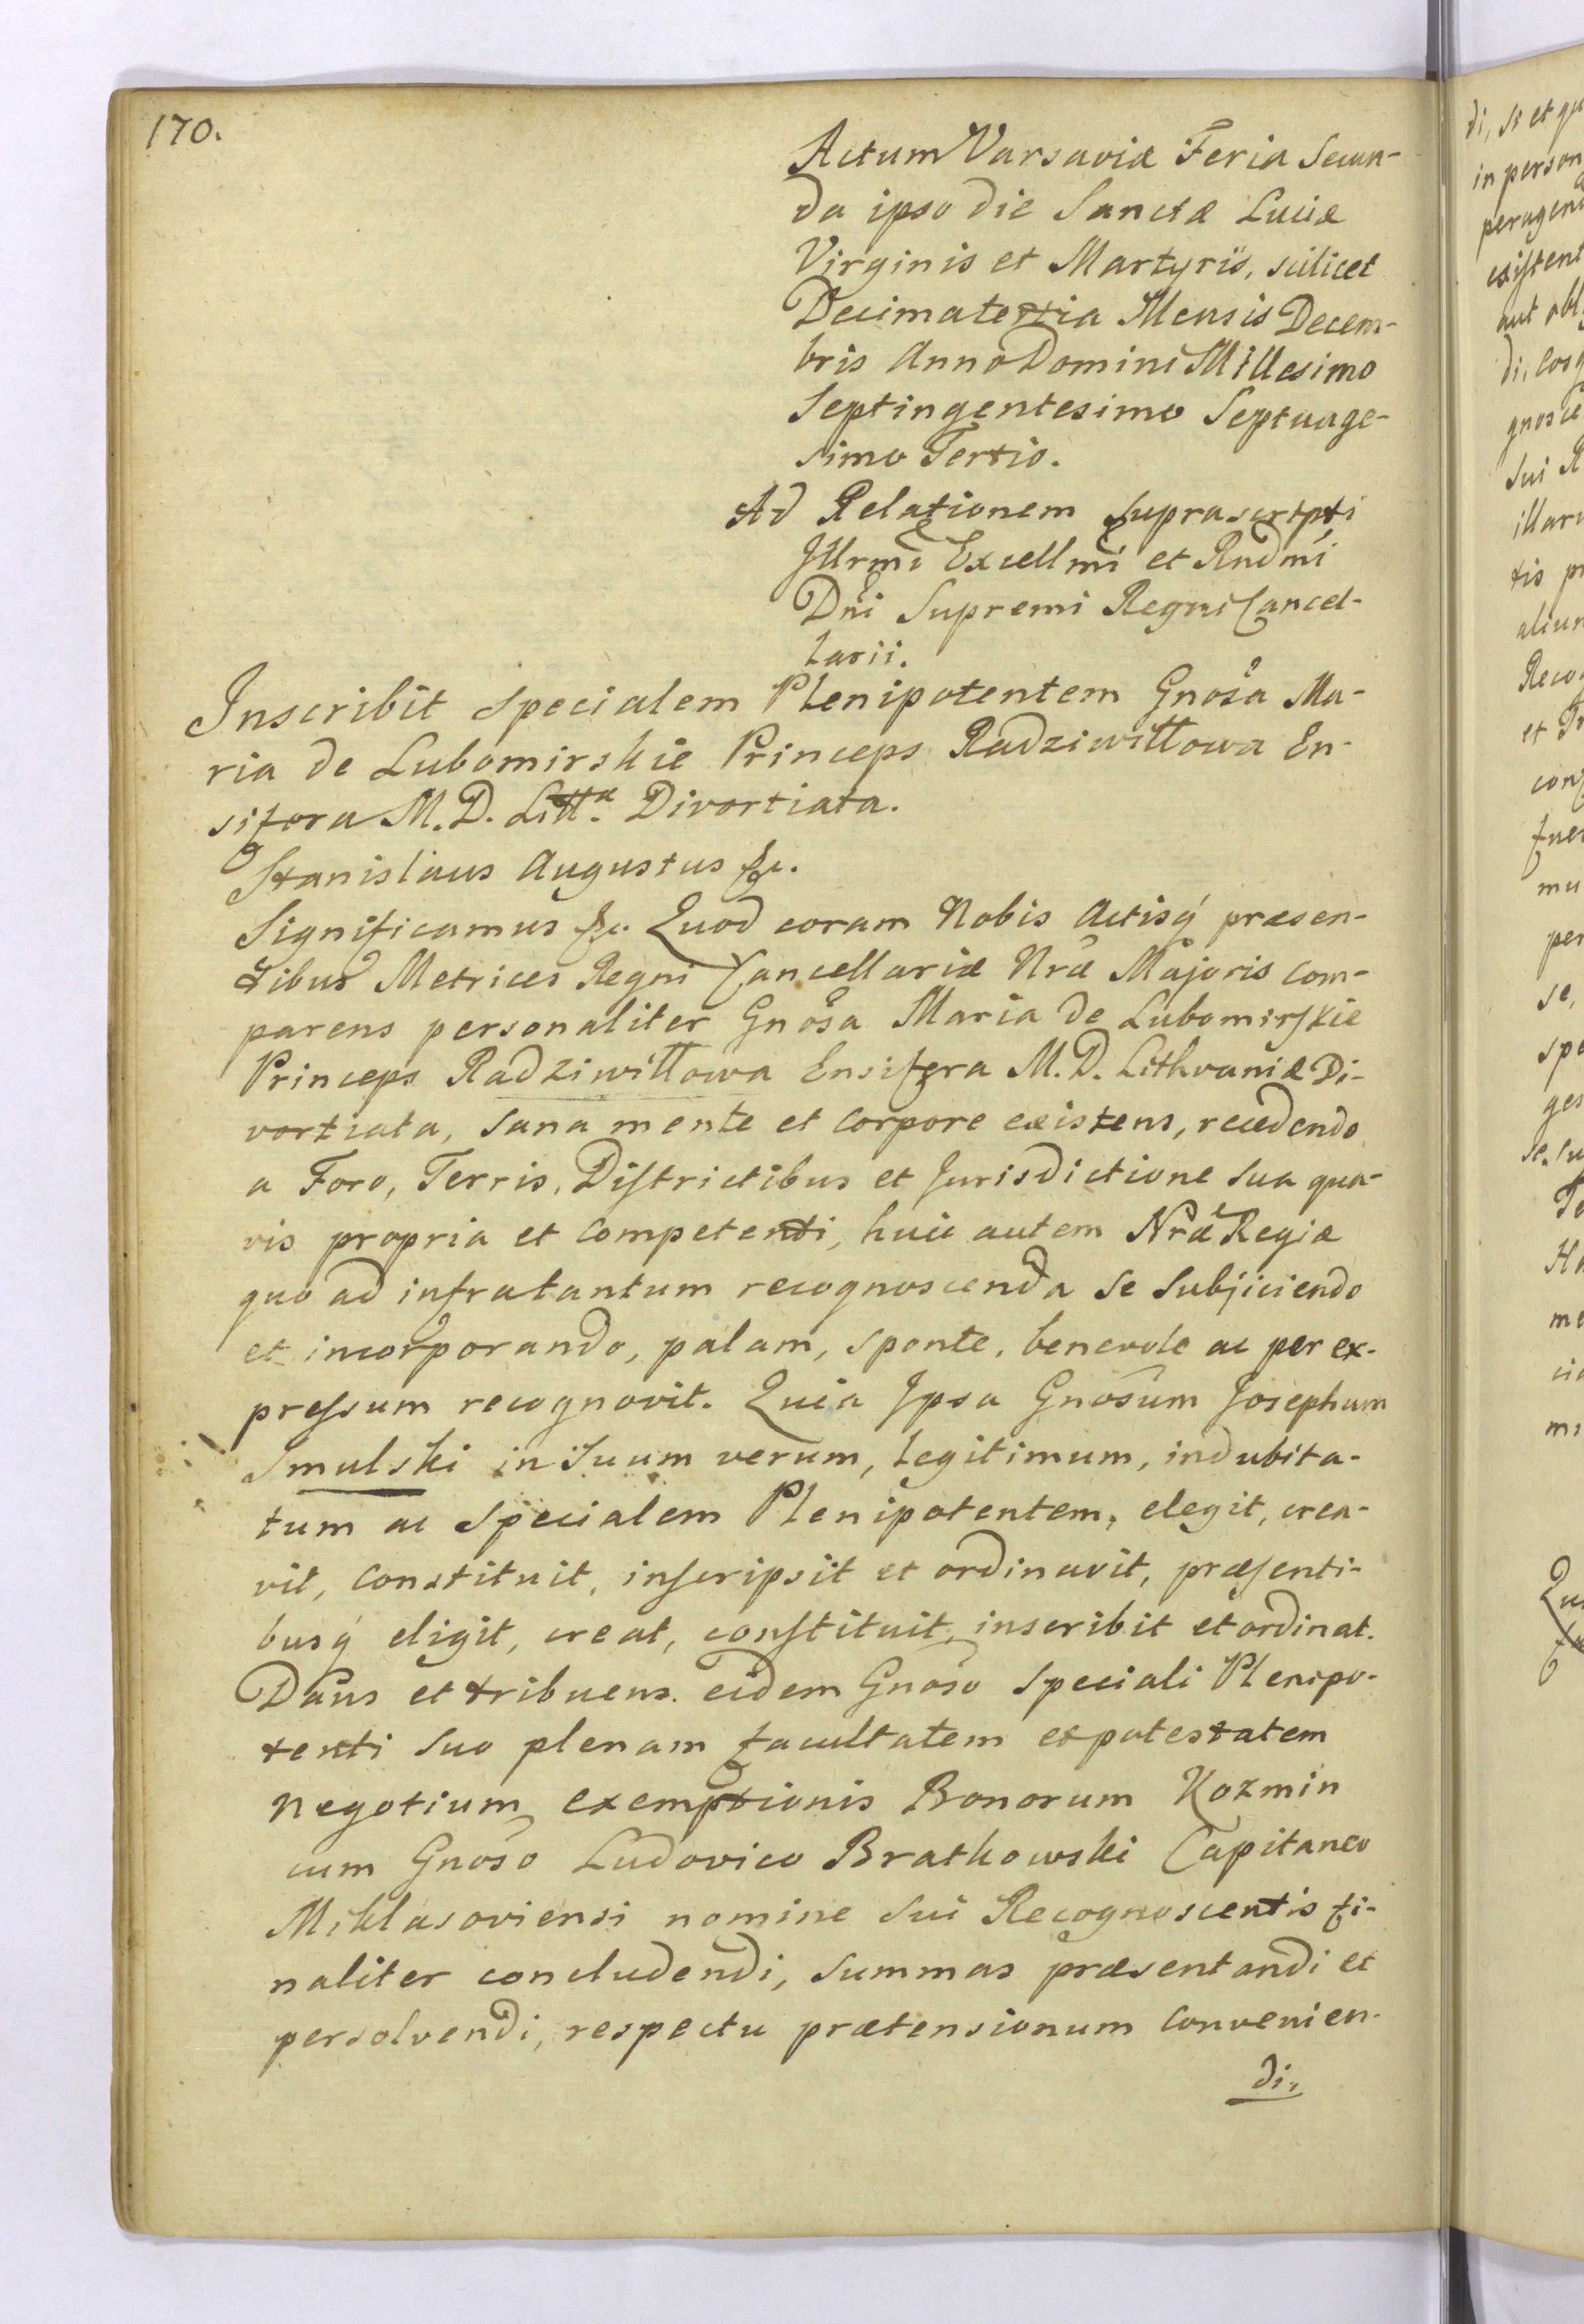 170.
Actum Varsaviæ Feria Secun-
da ipso die Sanctæ Luciæ
Virginis et Martyris, scilicet
Decimatertia Mensis Decem-
bris Anno Domini Millesimo
Septingentesimo Septuage-
simo Tertio.
Ad Relationem suprascripti
Illrmi Excellmi et Rndmi
Dni Supremi Regni Cancel-
larii.
Inscribit specialem Plenipotentem Gnosa Ma-
ria de Lubomirskie Princeps Radziwiłłowa En-
sifera M. D. Littæ Divortiata.
Stanislaus Augustus &c.
Significamus &c. Quod coram Nobis Actisq́ præsen-
tibus Metrices Regni Cancellariæ Nræ Majoris com-
parens personaliter Gnosa Maria de Lubomirskie
Princeps Radziwiłłowa Ensifera M. D. Lithvaniæ Di-
vortiata, sana mente et corpore existens, recedendo
a Foro, Terris, Districtibus et Jurisdictione sua qua-
vis propria et competenti, huic autem Nræ Regiæ
quo ad infratantum recognoscenda se subjiciendo
et incorporando, palam, sponte, benevole ac per ex-
pressum recognovit. Quia Ipsa Gnosum Josephum
Smulski in suum verum, legitimum, indubita-
tum ac specialem Plenipotentem, elegit, crea-
vit, constituit, inscripsit et ordinavit, præsenti-
busq́ eligit, creat, constituit, inscribit et ordinat.
Dans et tribuens eidem Gnoso speciali Plenipo-
tenti suo plenam facultatem et potestatem
negotium exemptionis Bonorum Kozmin
cum Gnoso Ludovico Bratkowski Capitaneo
Miklasoviensi nomine sui Recognoscentis fi-
naliter concludendi, summas præsentandi et
persolvendi, respectu prætensionum convenien-
di,